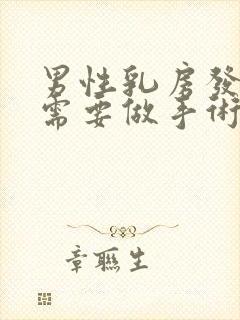 男性乳房發
需要做手術
章聯生